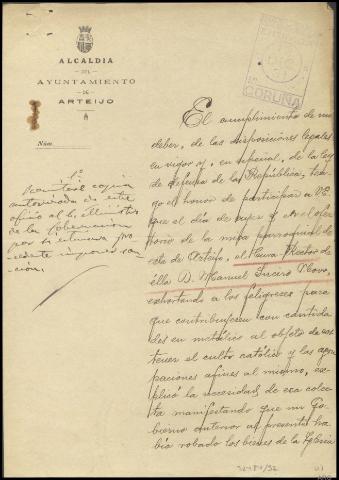 ALCALDIA
DEL
AYUNTAMIENTO
DE
ARTEIJO
Núm.
CORUÑA
1º
Remítase copia
autorizada de este
oficio al E. Ministro
de la Gobernacion
por si estimara pro
cedente imponer san
cion.
El cumplimiento de mi
deber, de las disposiciones legales
en vigor y, en especial, de la ley
de Defensa de la República, ten
go el honor de participar a VE
que el día de ayer y en el ofer
torio de la misa parroquial de
ésta de Arteijo, el Cura Rector de
ella D. Manuel
exhortando a los feligreses para
que contribuyesen con cantida
des en metálico al objeto de sos
tener el culto católico y las
paciones afines al mismo, ex
plicó la necesidad de esa colec
ta manifestando que un Go
bierno anterior al presente ha
bía robado los bienes de la Iglesia